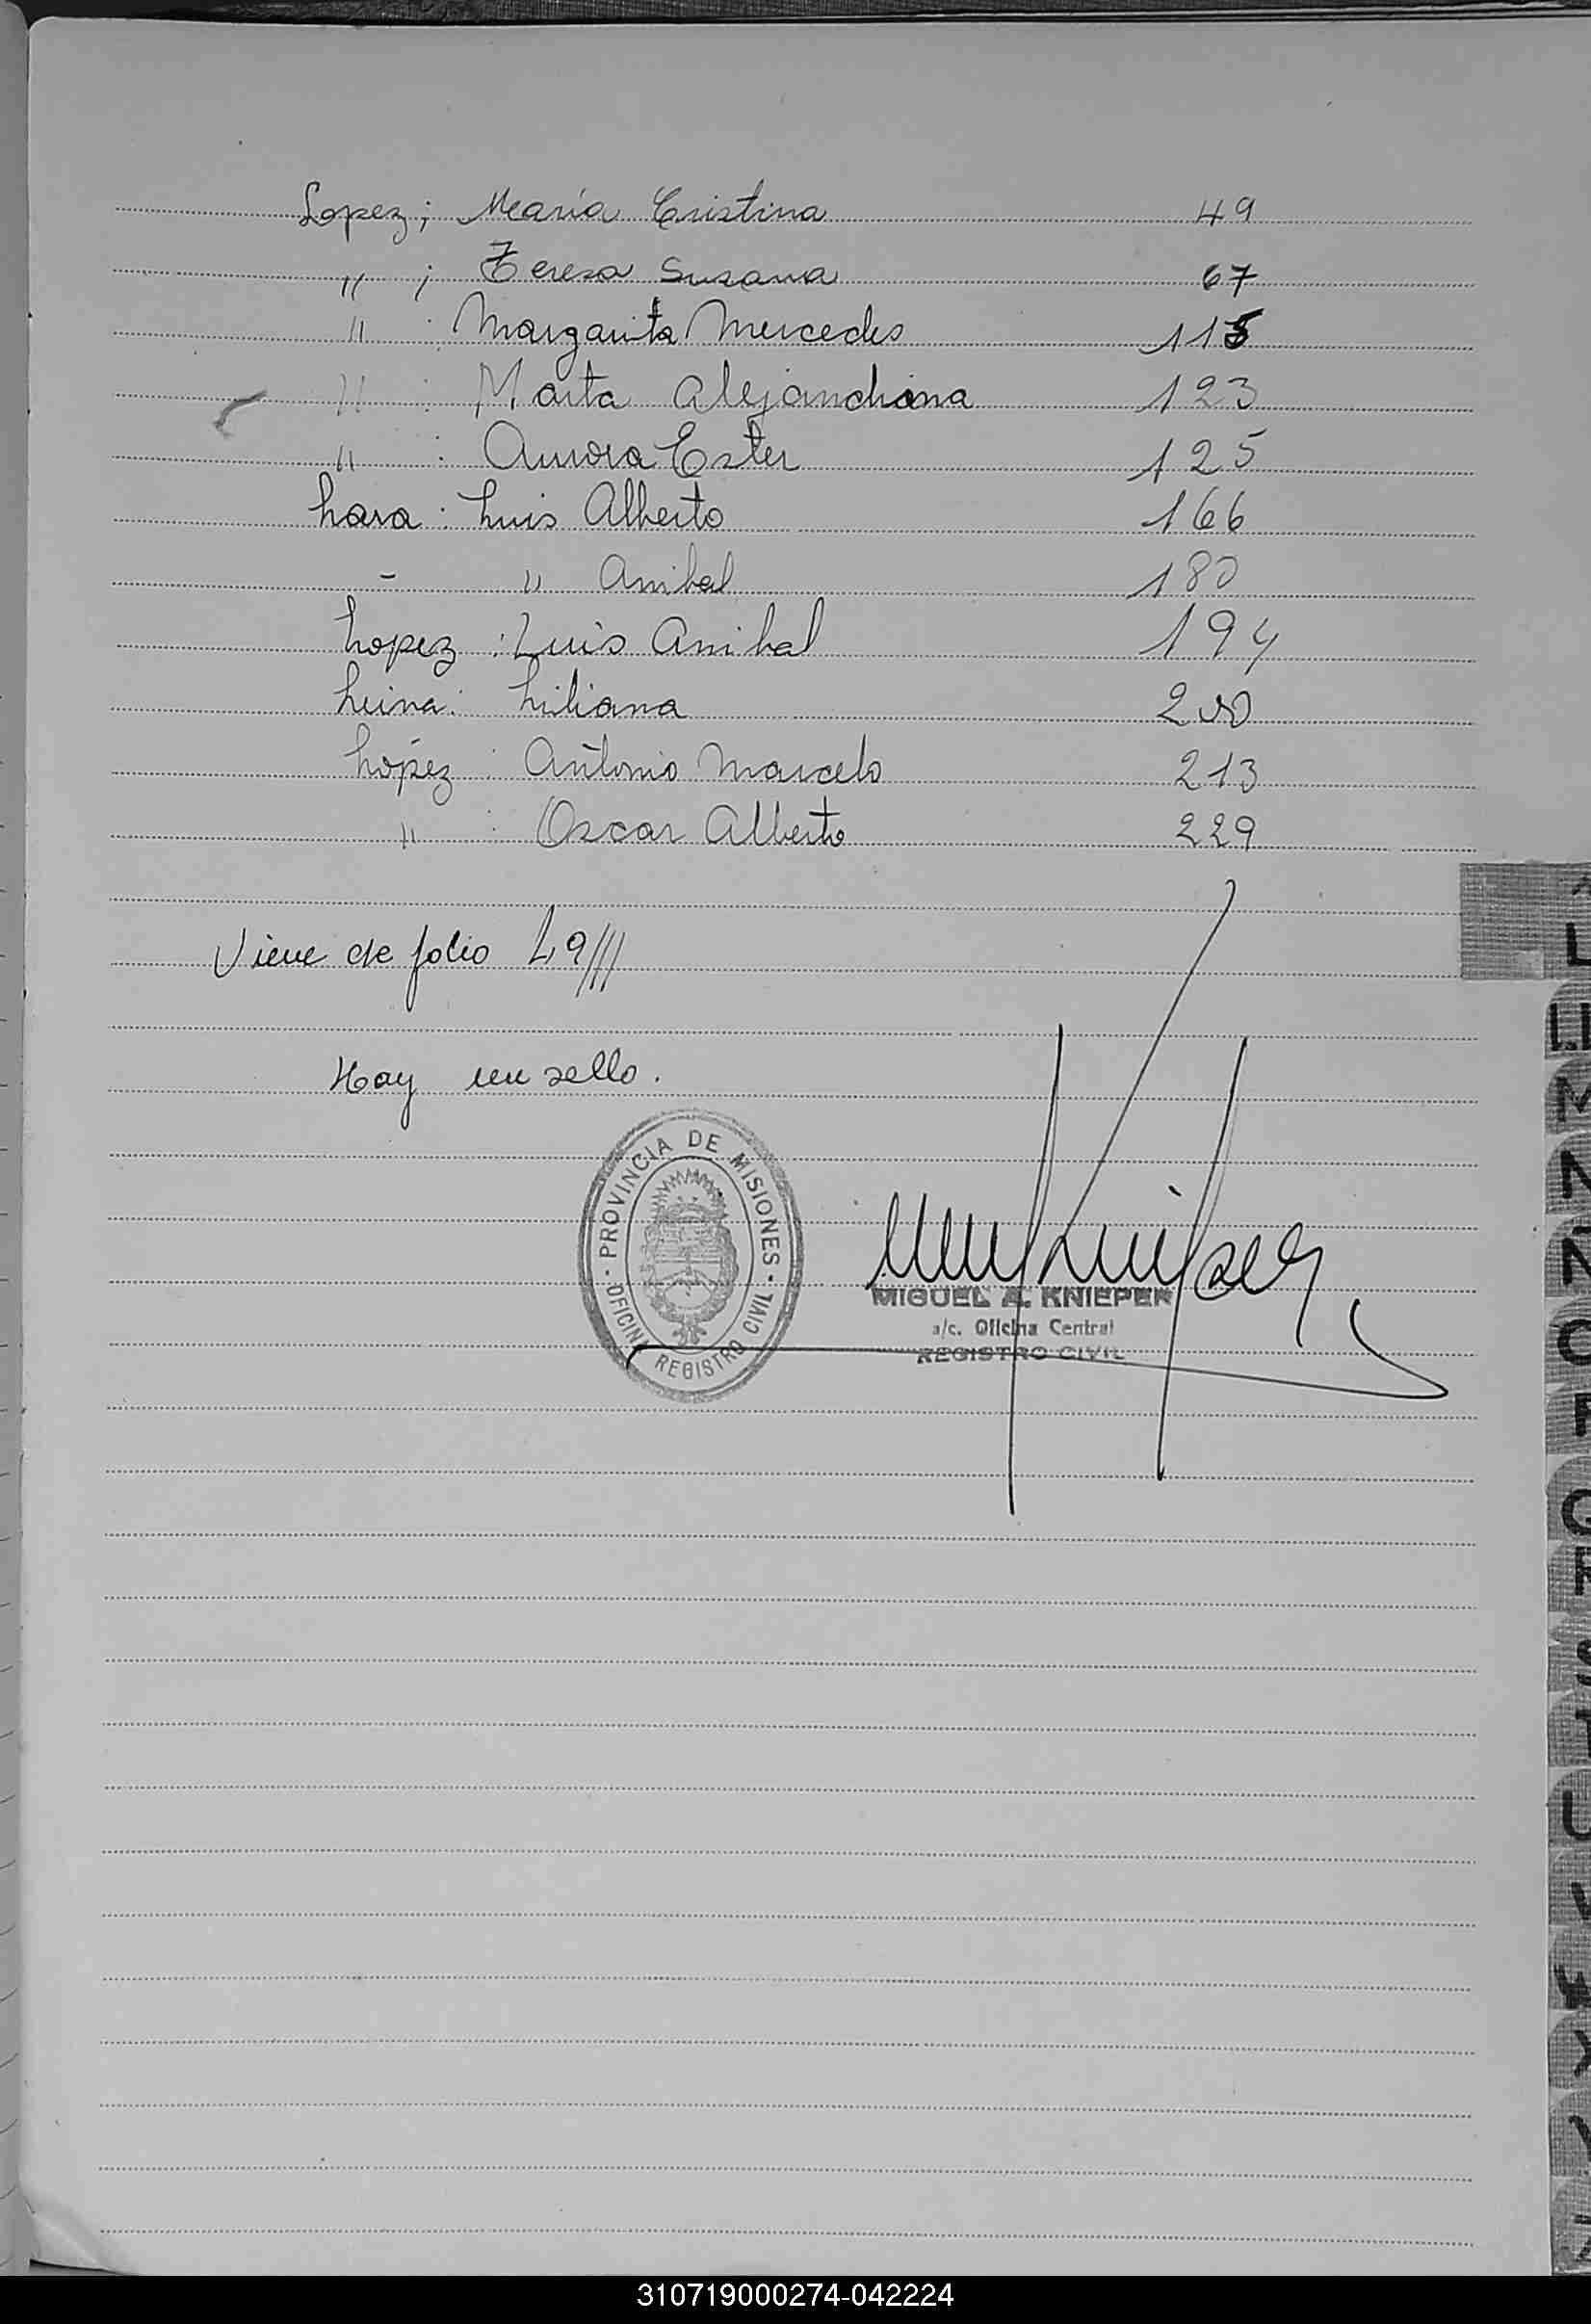 Lopez; María Cristina 49
" ; Teresa Susana 67
" : Margarita Mercedes 115
" : Marta Alejandrina 123
" : Aurora Ester 125
Lara : Luis Alberto 166
- " Anibal 180
Lopez : Luis Anibal 194
Leiva : Liliana 200
López : Antonio Marcelo 213
" : Oscar Alberto 229
Viene de folio 49///
Hay un sello.
PROVINCIA DE MISIONES
OFICINA REGISTRO CIVIL
MIGUEL A. KNIEPER
a/c. Oficina Central
REGISTRO CIVIL
L
LL
M
N
Ñ
O
P
Q
R
S
T
U
310719000274-042224